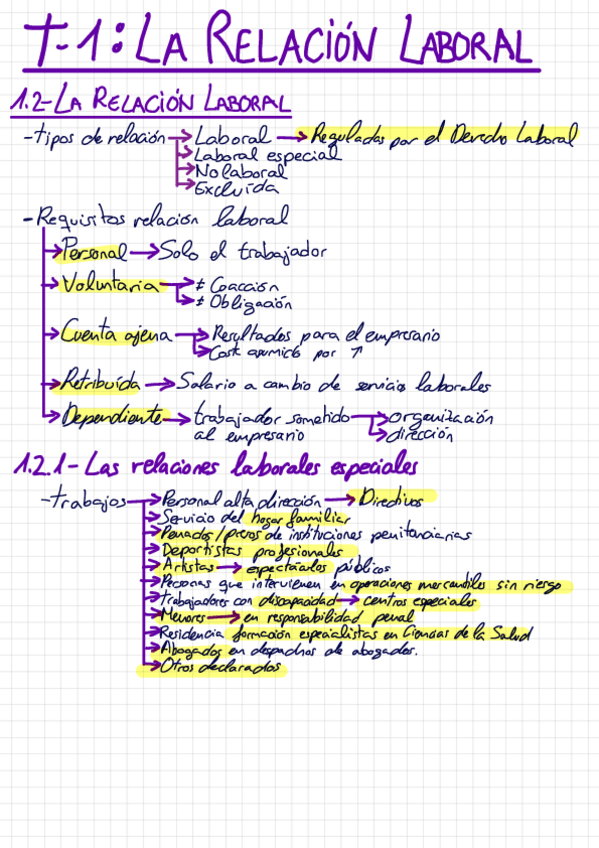 T-1: LA RELACIÓN LABORAL
1.2-LA RELACIÓN LABORAL
-tipos de relación → Laboral → Reguladas por el Derecho Laboral
→ Laboral especial
→ No laboral
→ Excluída
-Requisitos relación laboral
→ Personal → Solo el trabajador
→ Voluntaria → ≠ Coacción
→ ≠ Obligación
→ Cuenta ajena → Resultados para el empresario
→ Cost asumido por ↑
→ Retribuída → Salario a cambio de servicios laborales
→ Dependiente → trabajador sometido → organización
al empresario → dirección
1.2.1- Las relaciones laborales especiales
-trabajos → Personal alta dirección → Directivos
→ Servicio del hogar familiar
→ Penados/presos de instituciones penitenciarias
→ Deportistas profesionales
→ Artistas → espectáculos públicos
→ Personas que intervienen en operaciones mercantiles sin riesgo
→ trabajadores con discapacidad → centros especiales
→ Menores → en responsabilidad penal
→ Residencia formación especialistas en Ciencias de la Salud
→ Abogados en despachos de abogados.
→ Otros declarados